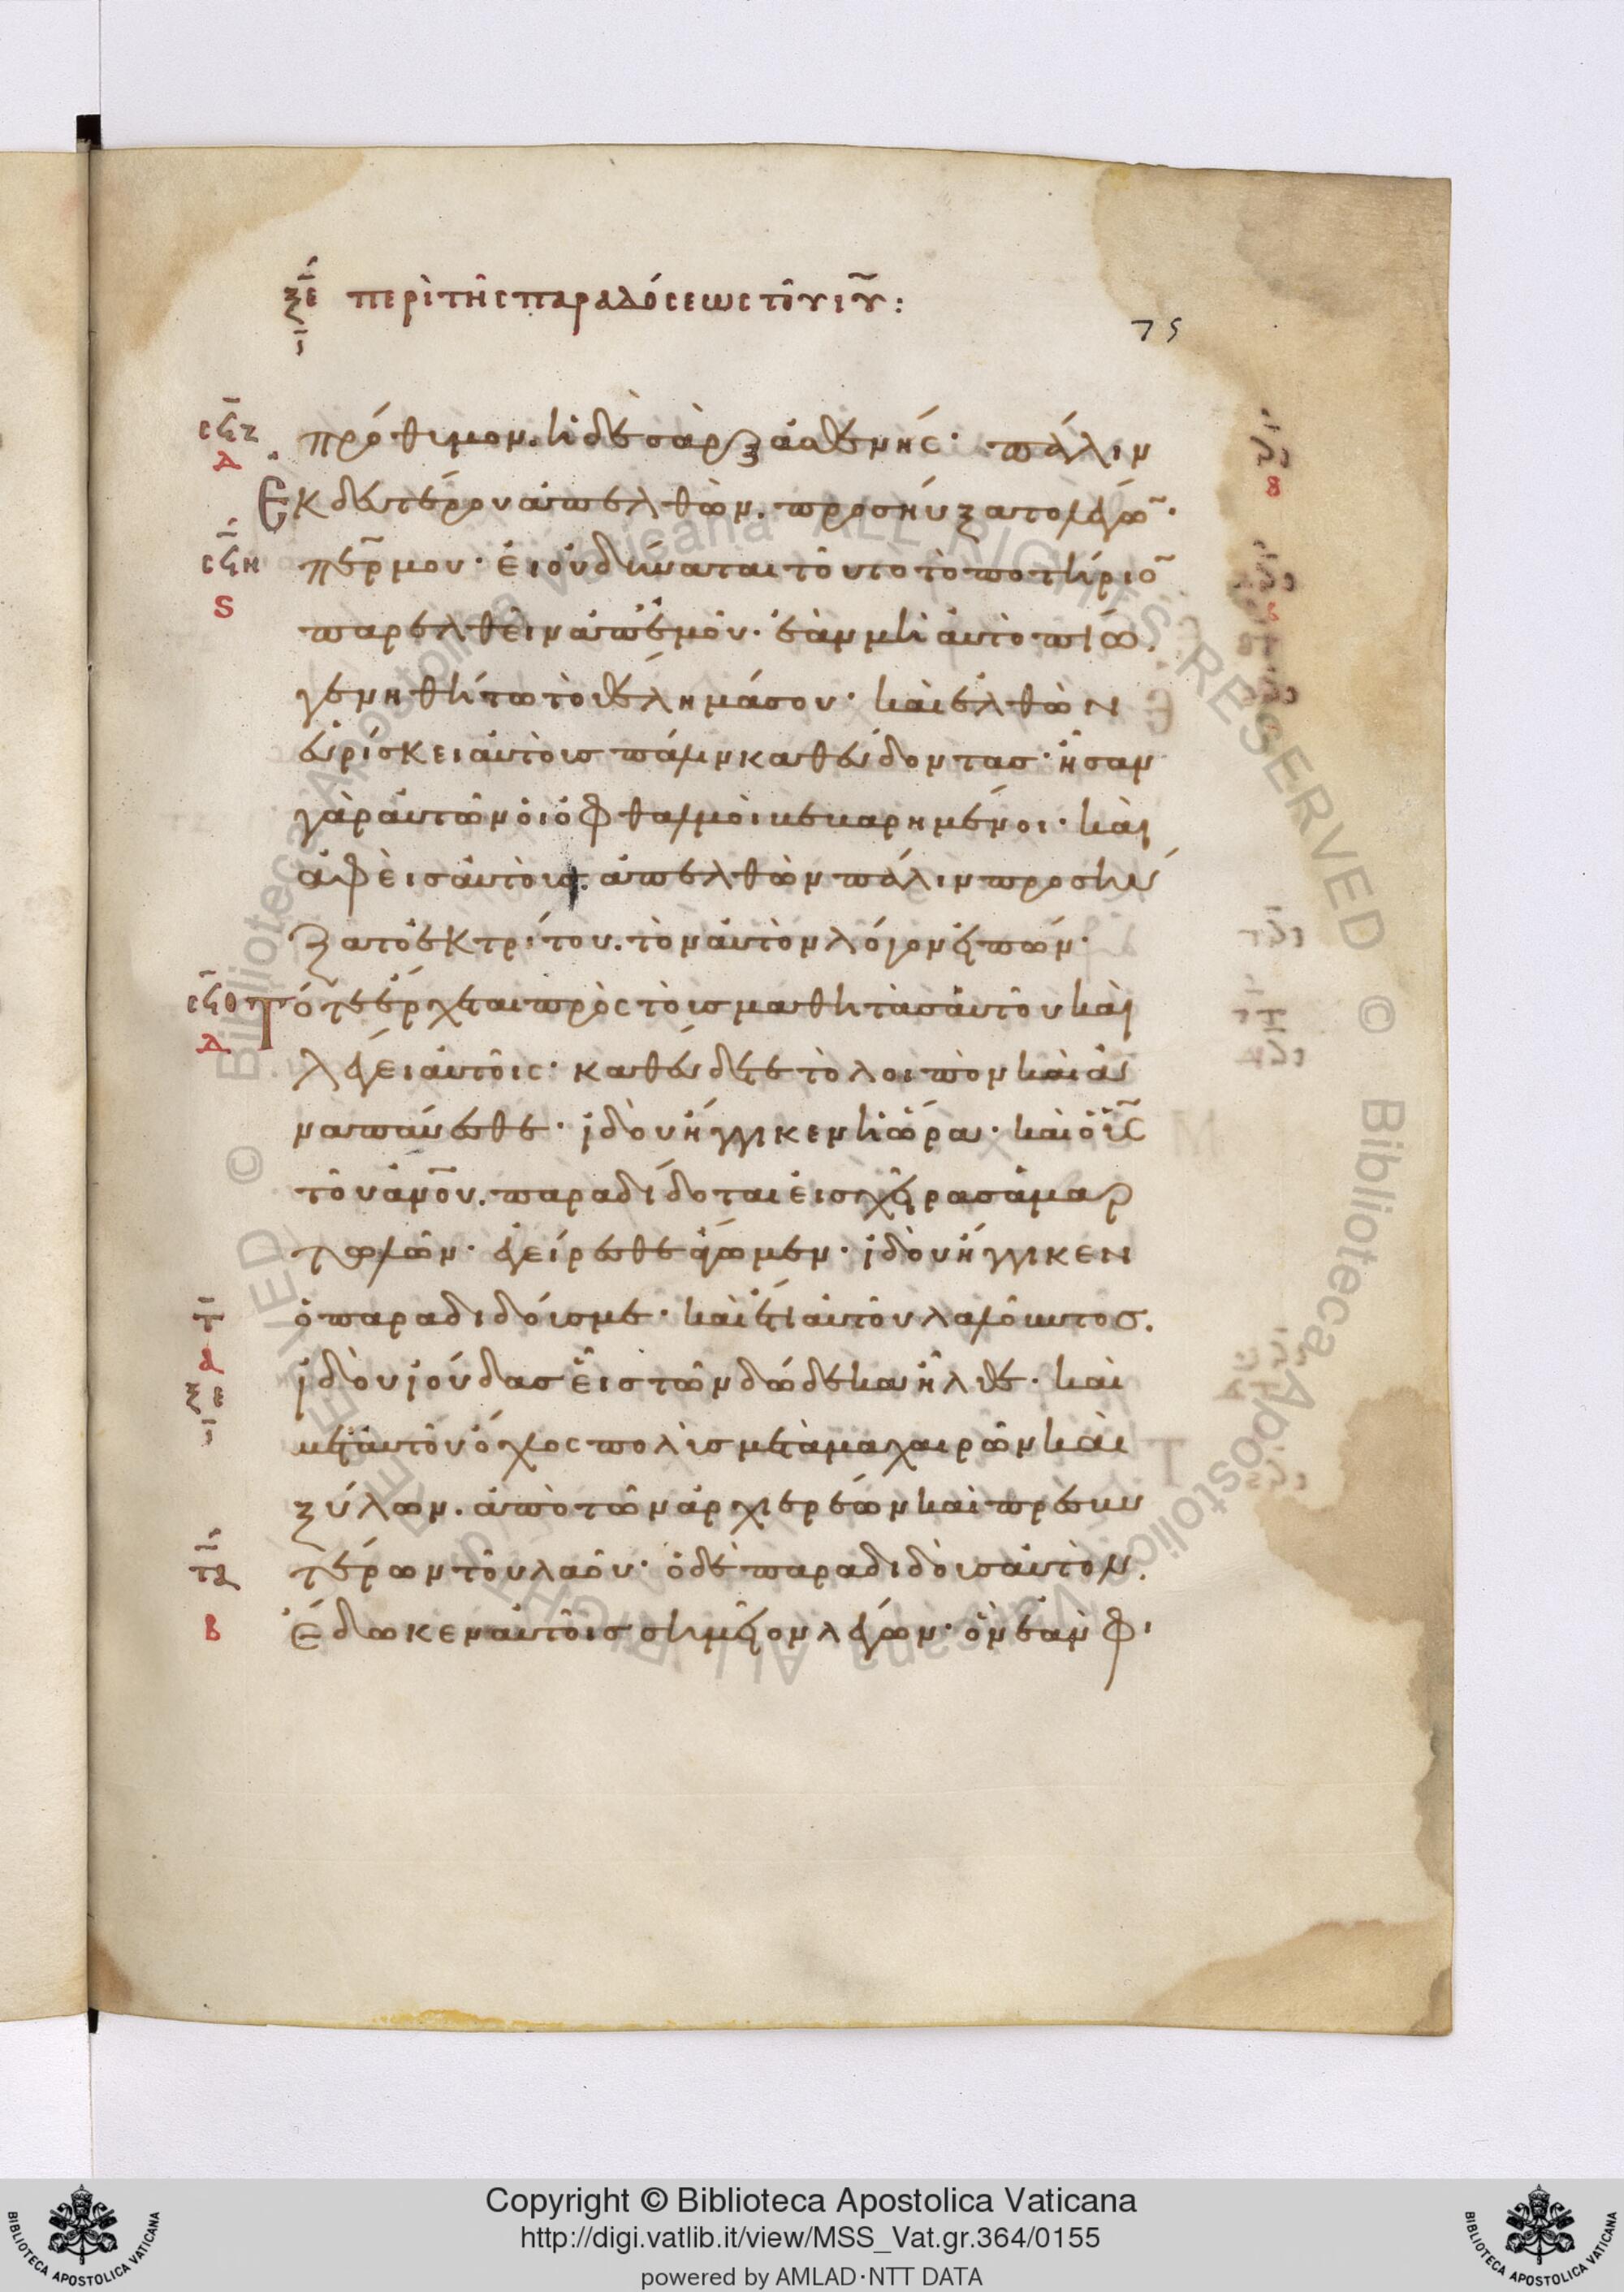 ξε περὶ τῆς παραδόσεως τοῦ ιυ:
ι
75
σϟζ
Δ
πρόθυμον. ἡ δὲ σὰρξ ἀσθενής· πάλιν
Ἐκ δευτέρου ἀπελθὼν. προσηύξατο λέγω̄·
σϟη
S
περ μου· εἰ οὐ δύναται τοῦτο τὸ ποτήριο̄
παρελθεῖν ἀπ' ἐμοῦ. ἐὰν μὴ αὐτὸ πίω.
γενηθήτω τὸ θέλημά σου· καὶ ἐλθὼν
εὑρίσκει αὐτοὺς πάλιν καθεύδοντας· ἦσαν
γὰρ αὐτῶν οἱ ὀφθαλμοὶ βεβαρημένοι· καὶ
ἀφεὶς αὐτούς. ἀπελθὼν πάλιν προσηύ
ξατο ἐκ τρίτου. τὸν αὐτὸν λόγον εἰπών·
σϟθ
Δ
Τότε ἔρχεται πρὸς τοὺς μαθητὰς αὐτοῦ καὶ
λέγει αὐτοῖς· καθεύδετε τὸ λοιπὸν καὶ ἀ
ναπαύεσθε· ἰδοὺ ἤγγικεν ἡ ὥρα· καὶ ὁ υς
τοῦ ανου. παραδίδοται εἰς χεῖρας ἁμαρ
τωλῶν· ἐγείρεσθε ἄγωμεν· ἰδοὺ ἤγγικεν
τ
α
ξε
ι
ὁ παραδιδούς με· καὶ ἔτι αὐτοῦ λαλοῦντος.
ἰδοὺ ἰούδας εἷς τῶν δώδεκα ἦλθε· καὶ
μετ' αὐτοῦ ὄχλος πολὺς μετὰ μαχαιρῶν καὶ
ξύλων. ἀπὸ τῶν ἀρχιερέων καὶ πρεσβυ
τα
β
τέρων τοῦ λαοῦ· ὁ δὲ παραδιδοὺς αὐτὸν.
ἔδωκεν αὐτοῖς σημεῖον λέγων· ὃν ἐὰν φι
Copyright © Biblioteca Apostolica Vaticana
http://digi.vatlib.it/view/MSS_Vat.gr.364/0155
powered by AMLAD·NTT DATA
BIBLIOTECA APOSTOLICA VATICANA
BIBLIOTECA APOSTOLICA VATICANA